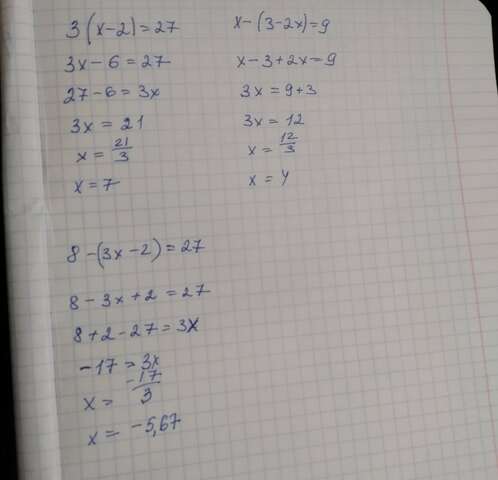 3(x-2)=27
3x-6=27
27-6=3x
3x=21
x=21/3
x=7
x-(3-2x)=9
x-3+2x=9
3x=9+3
3x=12
x=12/3
x=4
8-(3x-2)=27
8-3x+2=27
8+2-27=3x
-17=3x
x=-17/3
x=-5,67